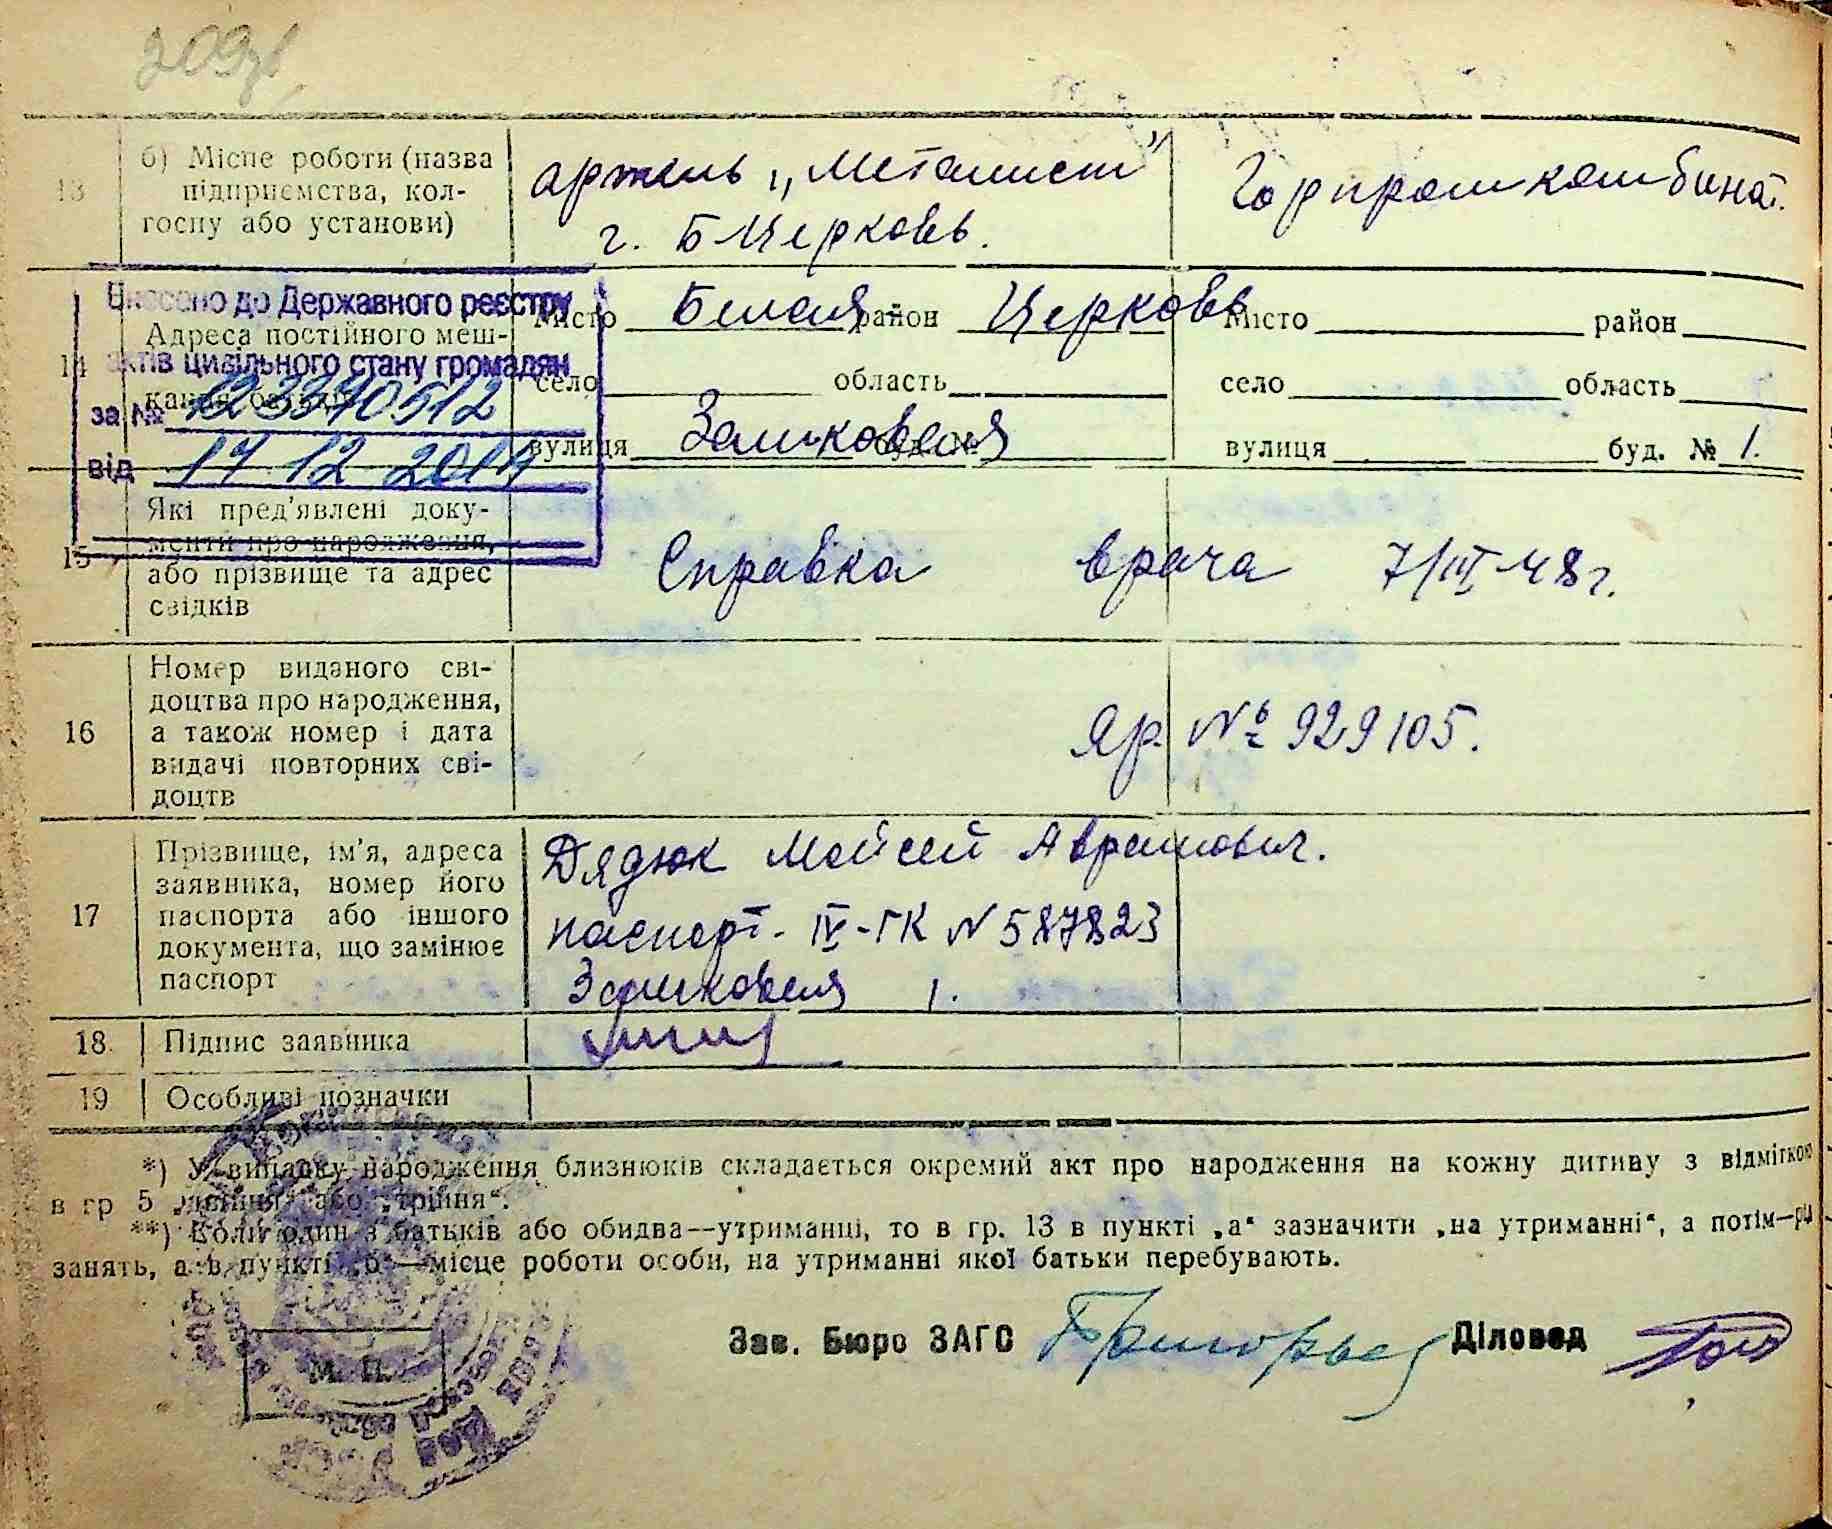 209зв
13 б) Місце роботи (назва підприємства, колгоспу або установи)
артель „Металист"
г. Б Церковь.
Горпромкомбинат.
Внесено до Державного реєстру
актів цивільного стану громадян
за №
від 17 12 2014
14 Адреса постійного меш-
місто Белая район Церковь місто район
село область село область
вулиця Замковая буд. № вулиця буд. № 1.
15 Які пред'явлені доку-
менти про народження,
або прізвище та адрес
свідків
Справка врача 7/III-48 г.
16 Номер виданого сві-
доцтва про народження,
а також номер і дата
видачі повторних сві-
доцтв
Яр. № 929105.
17 Прізвище, ім'я, адреса
заявника, номер його
паспорта або іншого
документа, що замінює
паспорт
Дядюк Мойсей Аврамович.
паспорт - IV-ГК N 587823
Замковая 1.
18 Підпис заявника
19 Особливі позначки
*) У випадку народження близнюків складається окремий акт про народження на кожну дитину з відміткою
в гр 5 „двійня" або „трійня".
**) Коли один з батьків або обидва—утриманці, то в гр. 13 в пункті „а" зазначити „на утриманні", а потім—рід
занять, а в пункті „б"—місце роботи особи, на утриманні якої батьки перебувають.
Зав. Бюро ЗАГС Діловод
М. П.